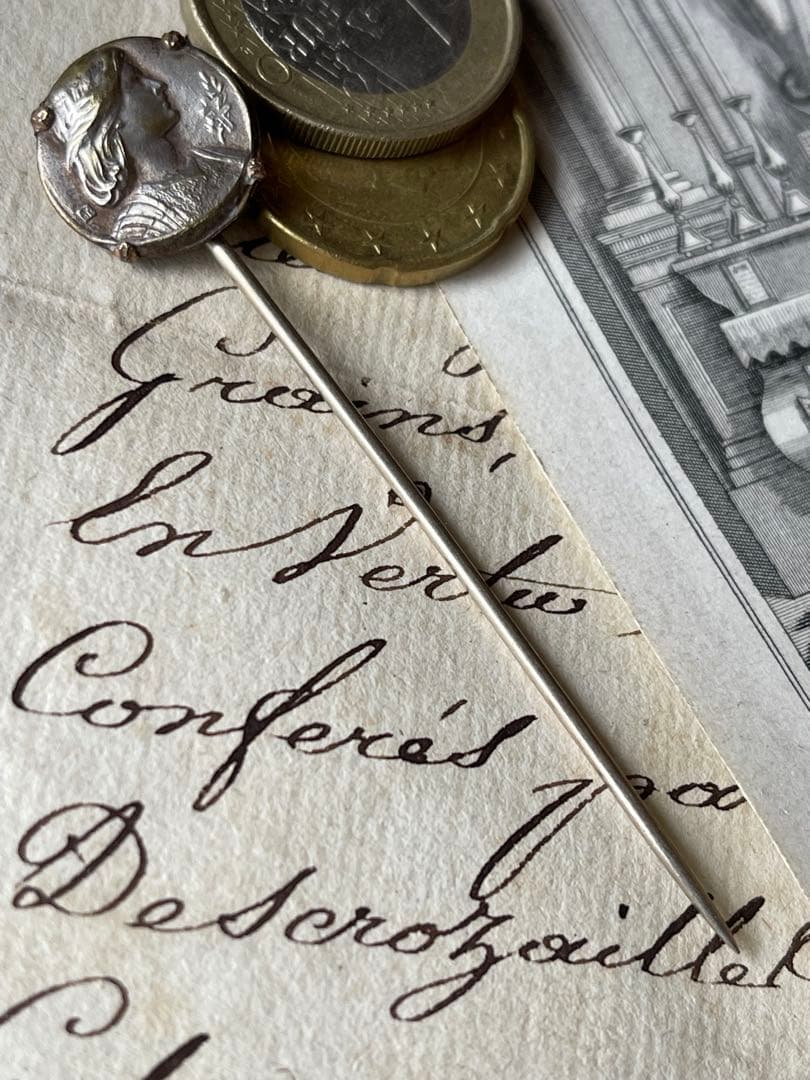 Grains,
En Vertu
Conferés pa
Descrozaille